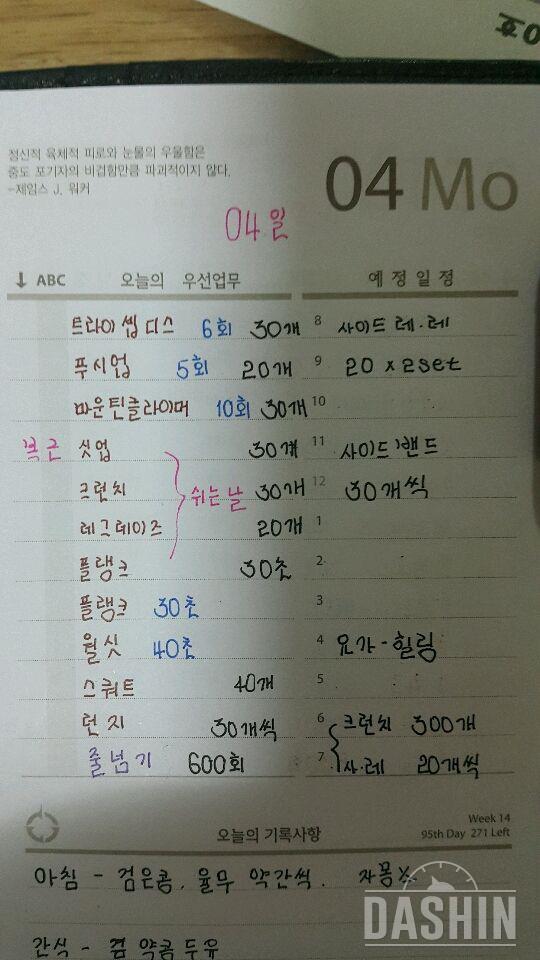 호
정신적 육체적 피로와 눈물의 우울함은
중도 포기자의 비겁함만큼 파괴적이지 않다.
-제임스 J. 워커
04 Mo
04일
↓ ABC 오늘의 우선업무 예정일정
트라이셉디스 6회 30개 8 사이드레.레
푸시업 5회 20개 9 20 x 2set
마운틴클라이머 10회 30개 10
복근 싯업 30개 11 사이드밴드
크런치 쉬는날 30개 12 30개씩
레그레이즈 20개 1
플랭크 30초 2
플랭크 30초 3
월싯 40초 4 요가-힐링
스쿼트 40개 5
런지 30개씩 6 크런치 300개
줄넘기 600회 7 사.레 20개씩
Week 14
오늘의 기록사항 95th Day 271 Left
아침 - 검은콩, 율무 약간씩. 자몽½
DASHIN
간식 - 검 약콩두유